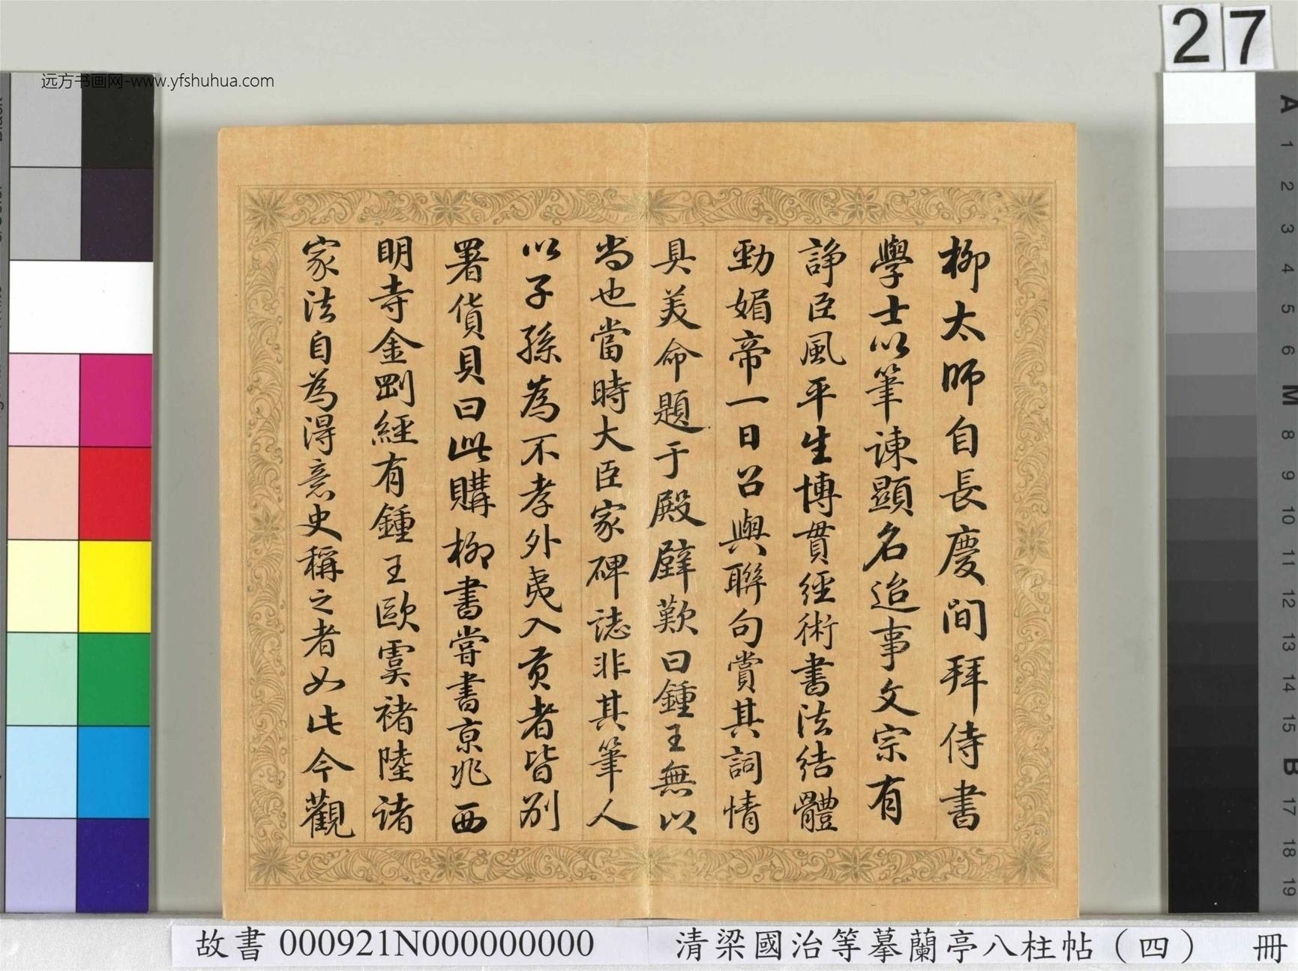 27
远方书画网-www.yfshuhua.com
柳太師自長慶間拜侍書
學士以筆諫顯名迨事文宗有
諍臣風平生博貫經術書法結體
勁媚帝一日召與聯句賞其詞情
具美命題于殿壁歎曰鍾王無以
尚也當時大臣家碑誌非其筆人
以子孫為不孝外夷入貢者皆別
署貨貝曰此購柳書嘗書京兆西
明寺金剛經有鍾王歐虞褚陸諸
家法自為得意史稱之者如此今觀
A
1
2
3
4
5
6
M
8
9
10
11
12
13
14
15
B
17
18
19
故書 000921N000000000
清梁國治等摹蘭亭八柱帖（四） 冊